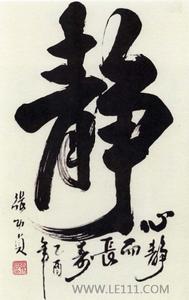 静
心静而長寿
乙酉年
WWW.LE111.COM